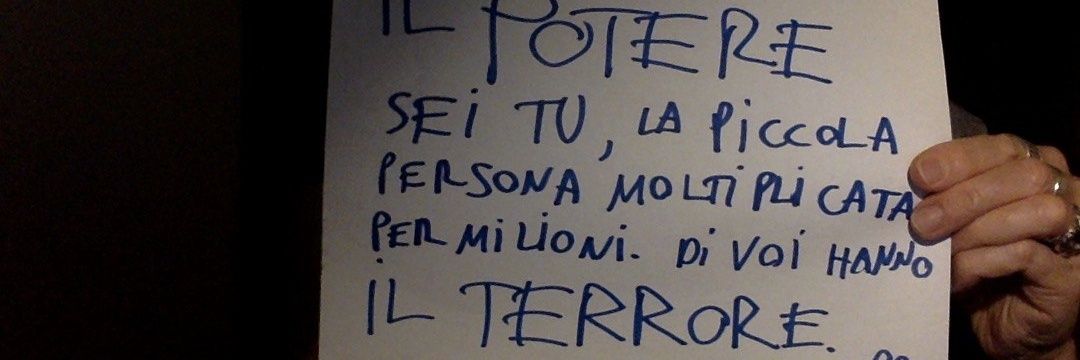 IL POTERE
SEI TU, LA PICCOLA
PERSONA MOLTIPLICATA
PER MILIONI. DI VOI HANNO
IL TERRORE.